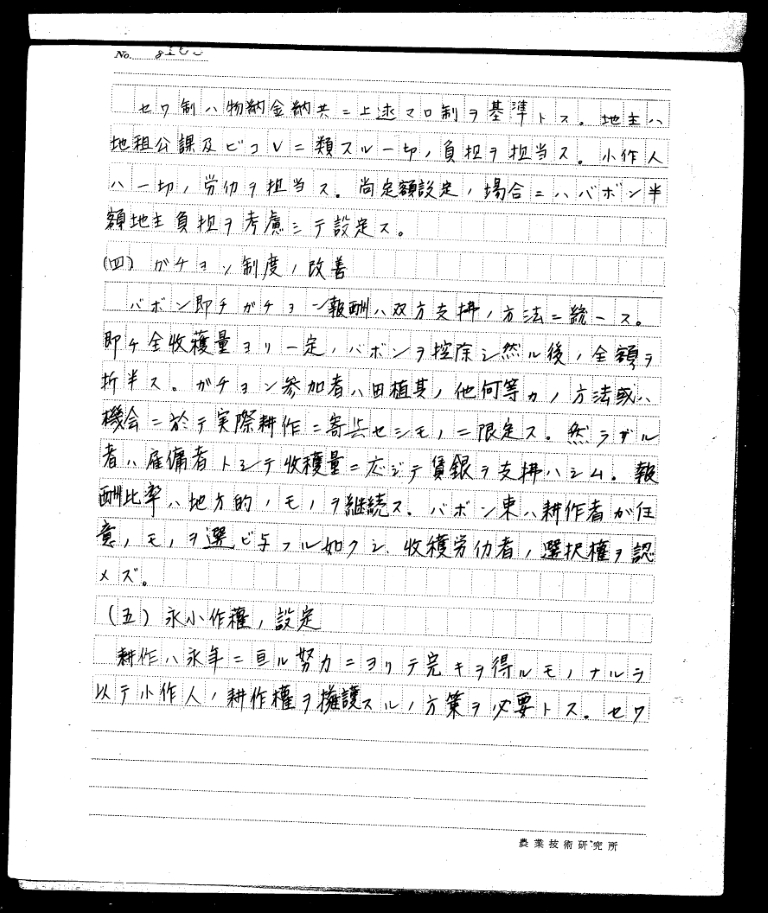 No.
セワ制ハ物納金納共ニ上述マロ制ヲ基準トス。地主ハ
地租公課及ビコレニ類スル一切ノ負担ヲ担当ス。小作人
ハ一切ノ労仂ヲ担当ス。尚定額設定ノ場合ニハバボン半
額地主負担ヲ考慮シテ設定ス。
(四) ガチヨン制度ノ改善
バボン即チガチヨン報酬ハ双方支拂ノ方法ニ統一ス。
即チ全收穫量ヨリ一定ノバボンヲ控除シ然ル後ノ全額ヲ
折半ス。ガチヨン参加者ハ田植其ノ他何等カノ方法或ハ
機会ニ於テ実際耕作ニ寄与セシモノニ限定ス。然ラザル
者ハ雇傭者トシテ收穫量ニ応ジテ賃銀ヲ支拂ハシム。報
酬比率ハ地方的ノモノヲ継続ス。バボン束ハ耕作者ガ任
意ノモノヲ選ビ与フル如クシ、收穫労仂者ノ選択権ヲ認
メズ。
(五) 永小作権ノ設定
耕作ハ永年ニ亘ル努力ニヨリテ完キヲ得ルモノナルヲ
以テ小作人ノ耕作權ヲ擁護スルノ方策ヲ必要トス。セワ
農業技術研究所